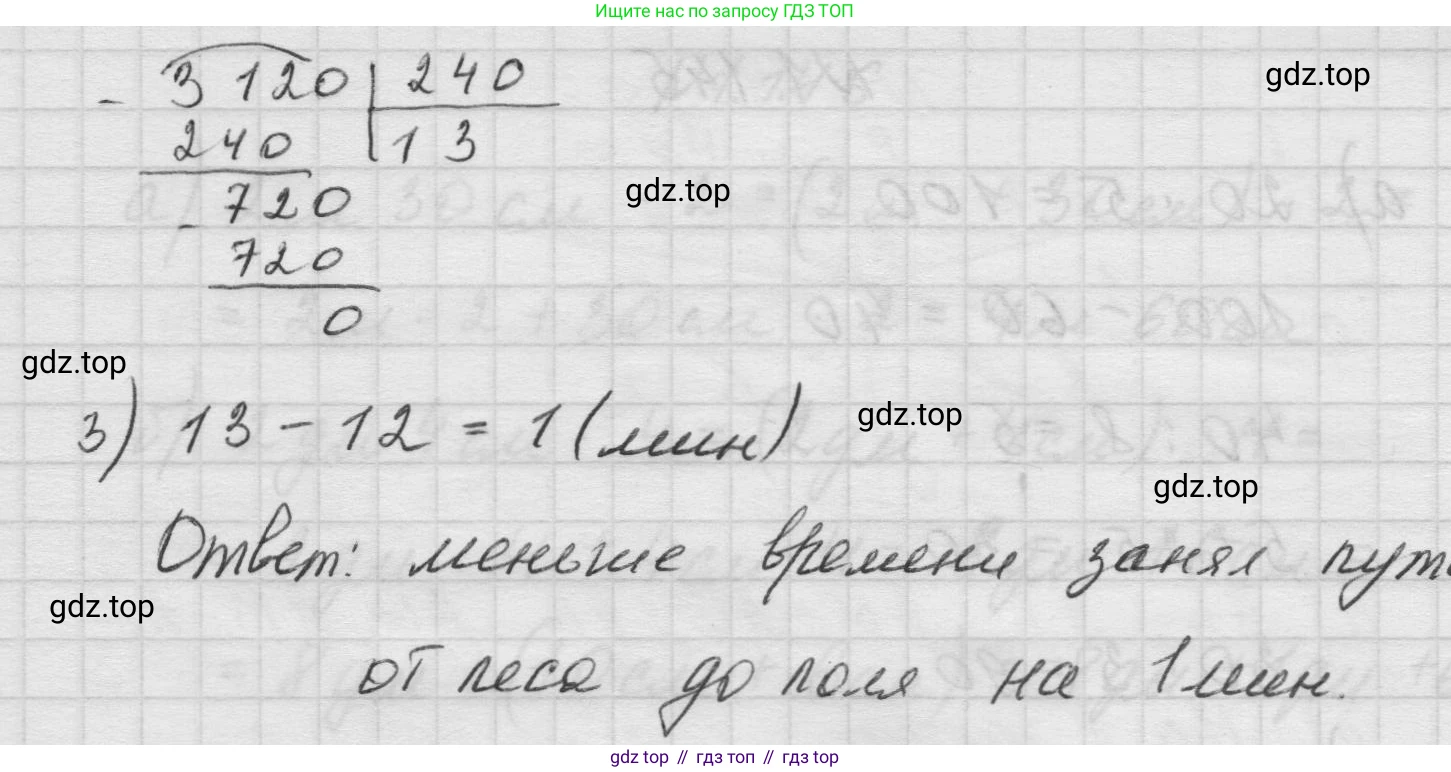 Ищите нас по запросу ГДЗ ТОП
- 3120 | 240
gdz.top
240 | 13
- 720
gdz.top
720
0
gdz.top
3) 13 - 12 = 1 (мин)
gdz.top
gdz.top
Ответ: меньше времени занял путь
gdz.top
от леса до поля на 1 мин.
gdz top // гдз топ // гдз top